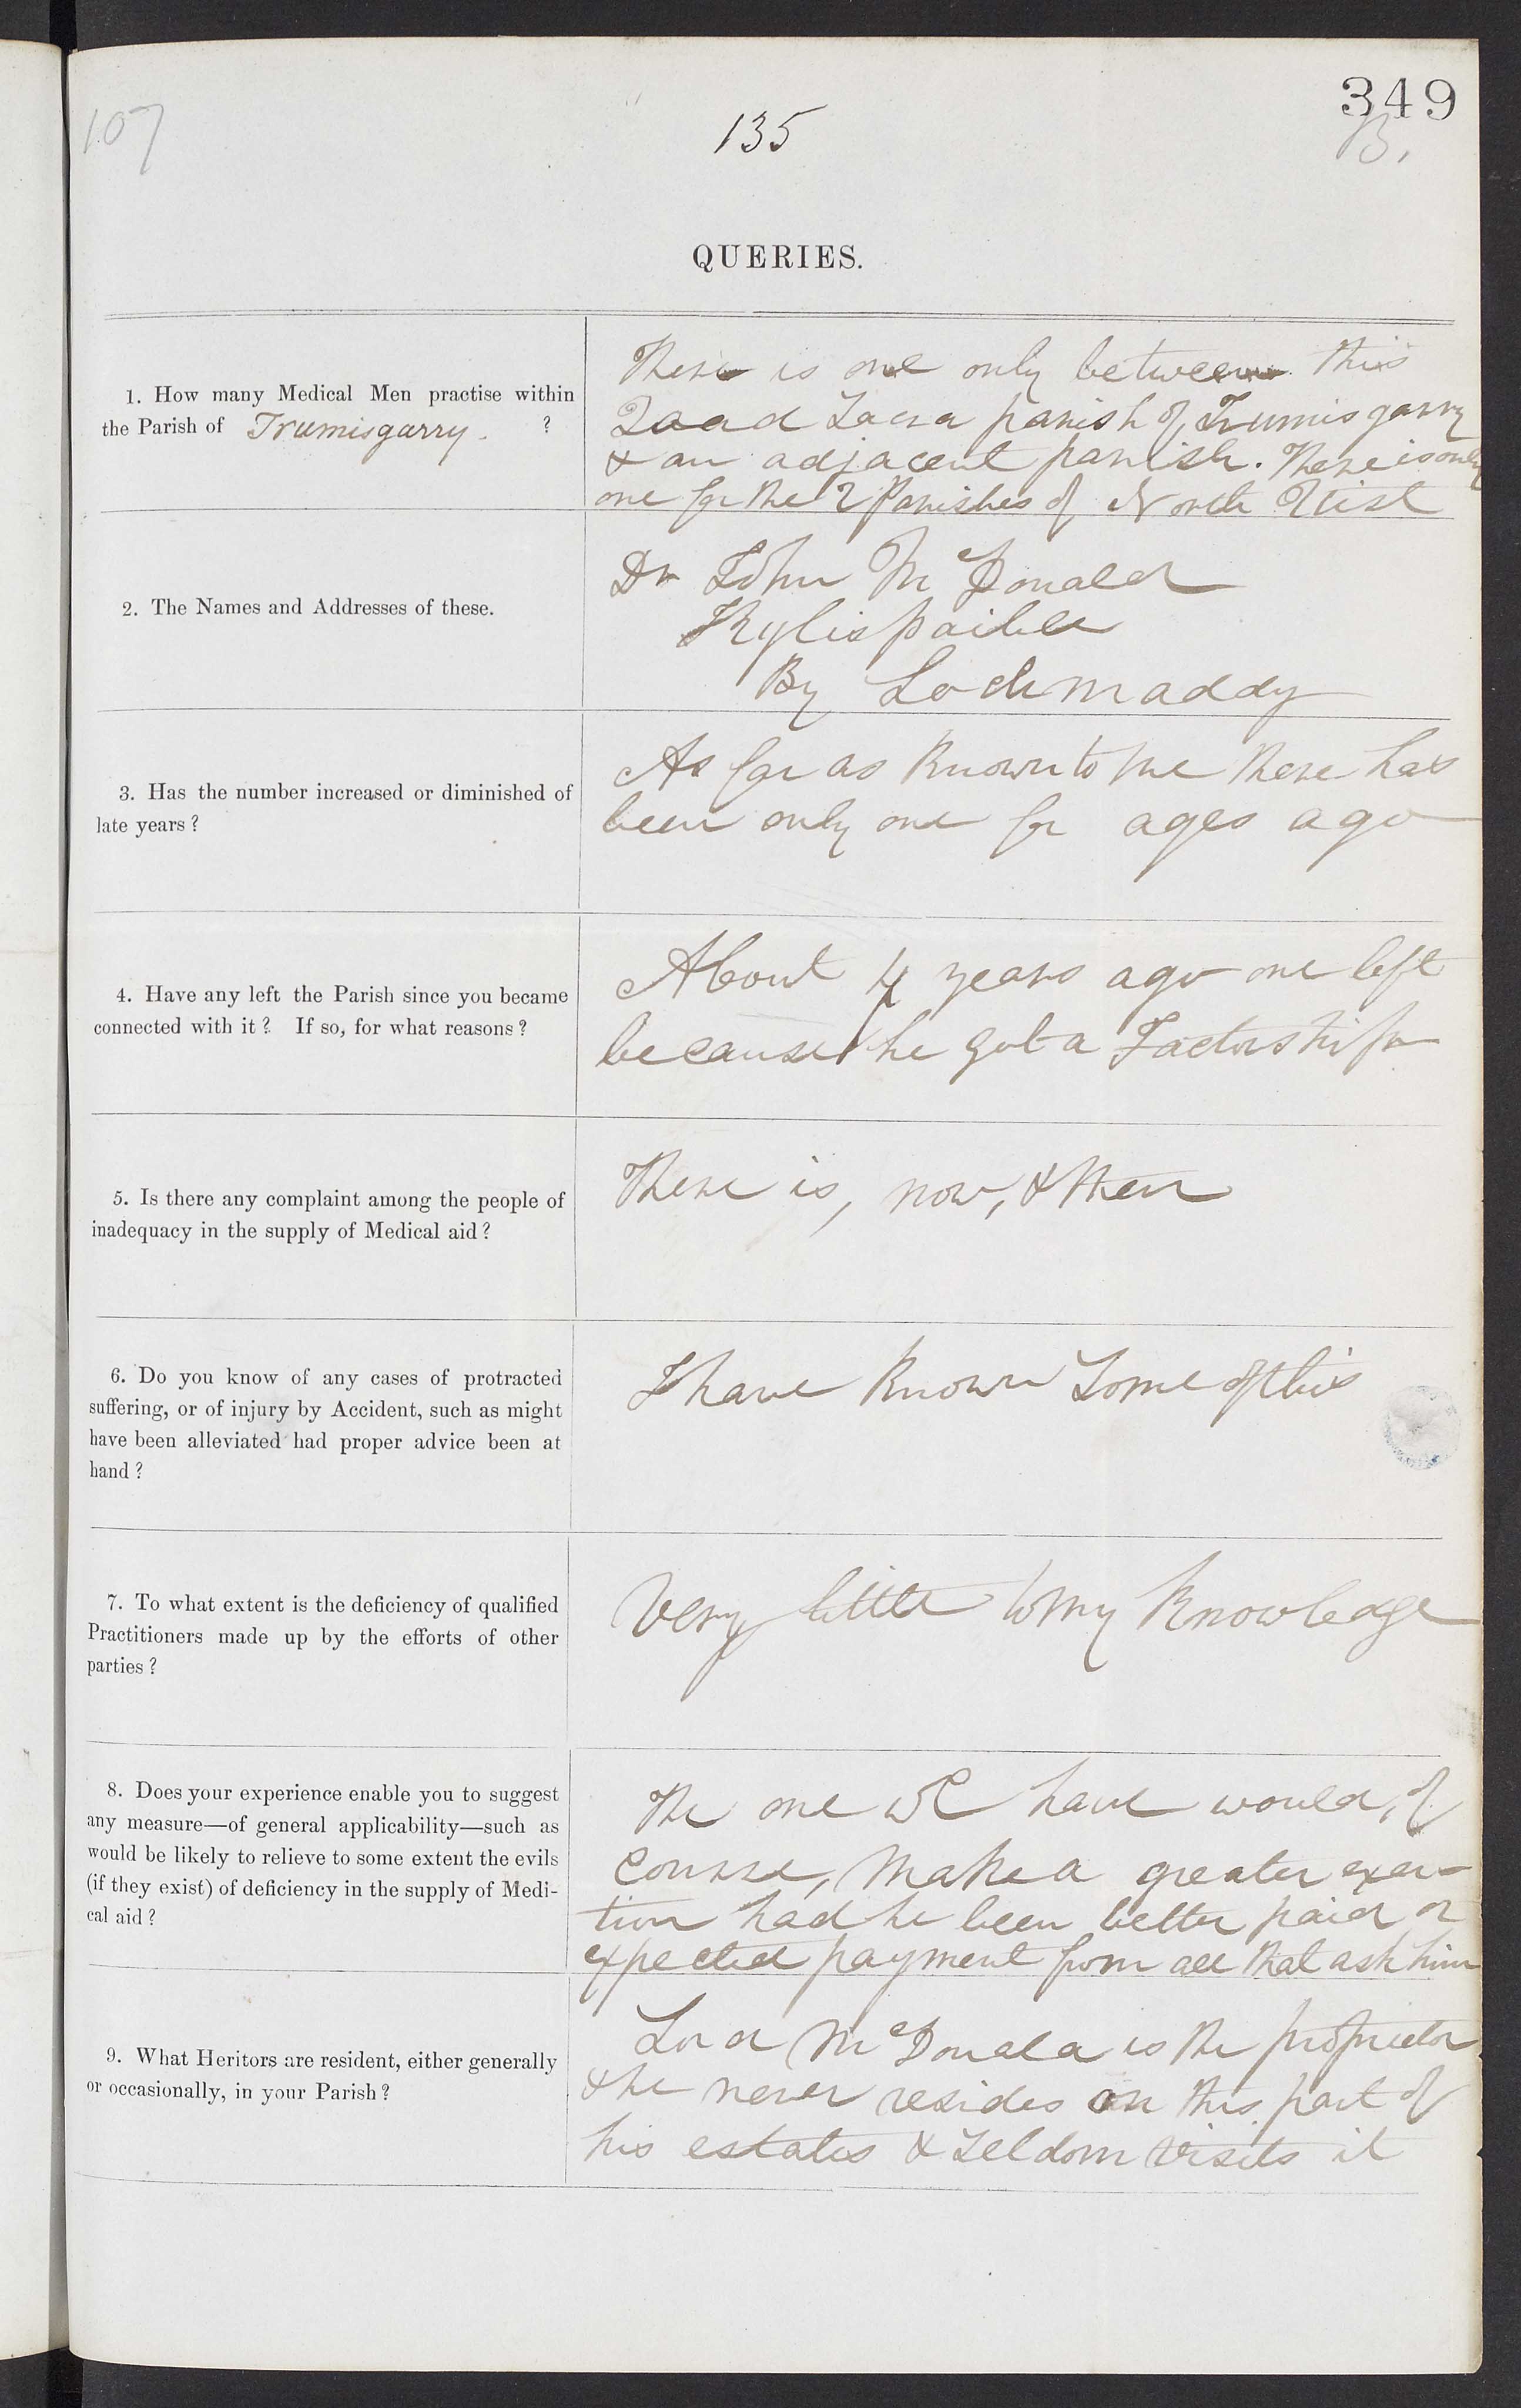 349
107
135
B.
QUERIES.
1. How many Medical Men practise within
the Parish of Trumisgarry. ?
There is one only between this
Quoad Sacra parish of Trumisgarry
& an adjacent parish. There is only
one for the 2 Parishes of North Uist
2. The Names and Addresses of these.
Dr John McDonald
Kylispaible
By Lochmaddy
3. Has the number increased or diminished of
late years?
As far as Known to me there has
been only one for ages ago
4. Have any left the Parish since you became
connected with it? If so, for what reasons?
About 4 years ago one left
because he got a Factorship
5. Is there any complaint among the people of
inadequacy in the supply of Medical aid?
There is, now, & then
6. Do you know of any cases of protracted
suffering, or of injury by Accident, such as might
have been alleviated had proper advice been at
hand?
I have Known Some of this
7. To what extent is the deficiency of qualified
Practitioners made up by the efforts of other
parties?
Very little to my Knowledge
8. Does your experience enable you to suggest
any measure—of general applicability—such as
would be likely to relieve to some extent the evils
(if they exist) of deficiency in the supply of Medi-
cal aid?
The one we have would, of
Course, Make a greater exer-
tion had he been better paid or
expected payment from all that ask him
9. What Heritors are resident, either generally
or occasionally, in your Parish?
Lord McDonald is the proprietor
& he never resides on this part of
his estates & Seldom visits it